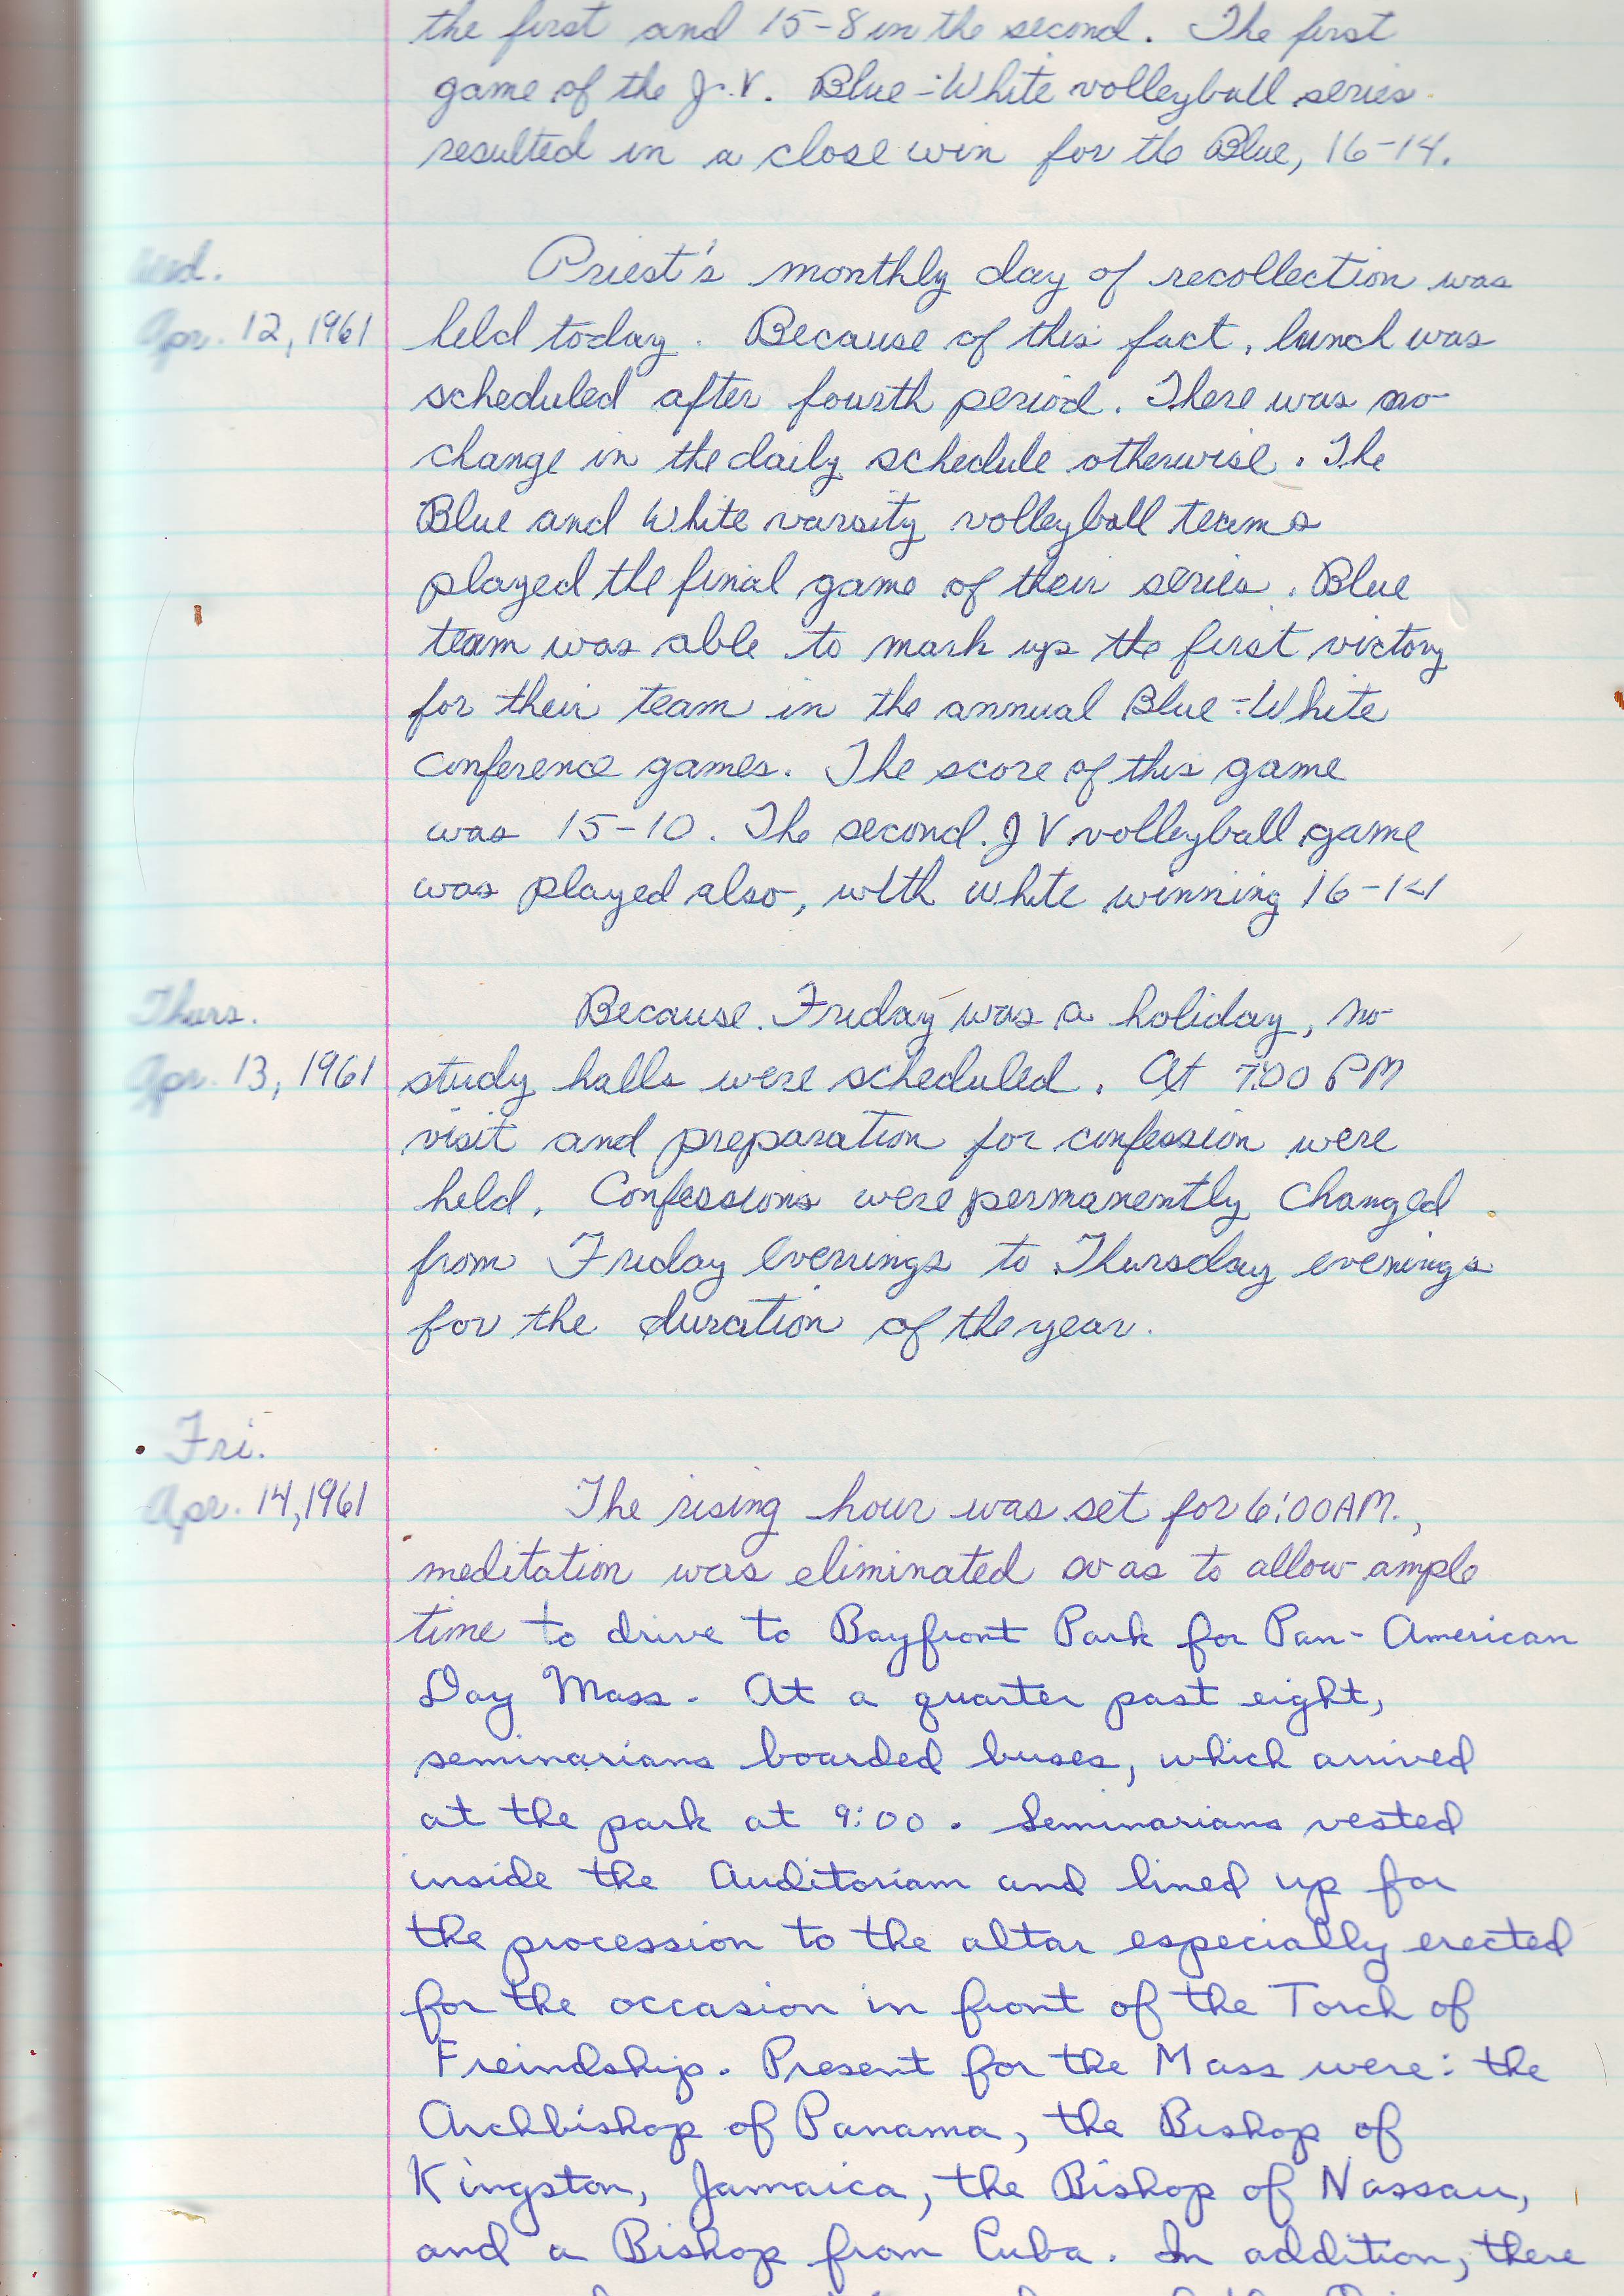 the first and 15-8 in the second. The first
game of the J.V. Blue-White volleyball series
resulted in a close win for the Blue, 16-14.
Wed.
Apr. 12, 1961
Priest's monthly day of recollection was
held today. Because of this fact, lunch was
scheduled after fourth period. There was no
change in the daily schedule otherwise. The
Blue and White varsity volleyball teams
played the final game of their series. Blue
team was able to mark up the first victory
for their team in the annual Blue-White
conference games. The score of this game
was 15-10. The second JV volleyball game
was played also, with White winning 16-14
Thurs.
Apr. 13, 1961
Because Friday was a holiday, no
study halls were scheduled. At 7:00 PM
visit and preparation for confession were
held. Confessions were permanently changed
from Friday evenings to Thursday evenings
for the duration of the year.
Fri.
Apr. 14, 1961
The rising hour was set for 6:00 AM.,
meditation was eliminated so as to allow ample
time to drive to Bayfront Park for Pan-American
Day Mass. At a quarter past eight,
seminarians boarded buses, which arrived
at the park at 9:00. Seminarians vested
inside the Auditoriam and lined up for
the procession to the altar especially erected
for the occasion in front of the Torch of
Freindship. Present for the Mass were: the
Archbishop of Panama, the Bishop of
Kingston, Jamaica, the Bishop of Nassau,
and a Bishop from Cuba. In addition, there